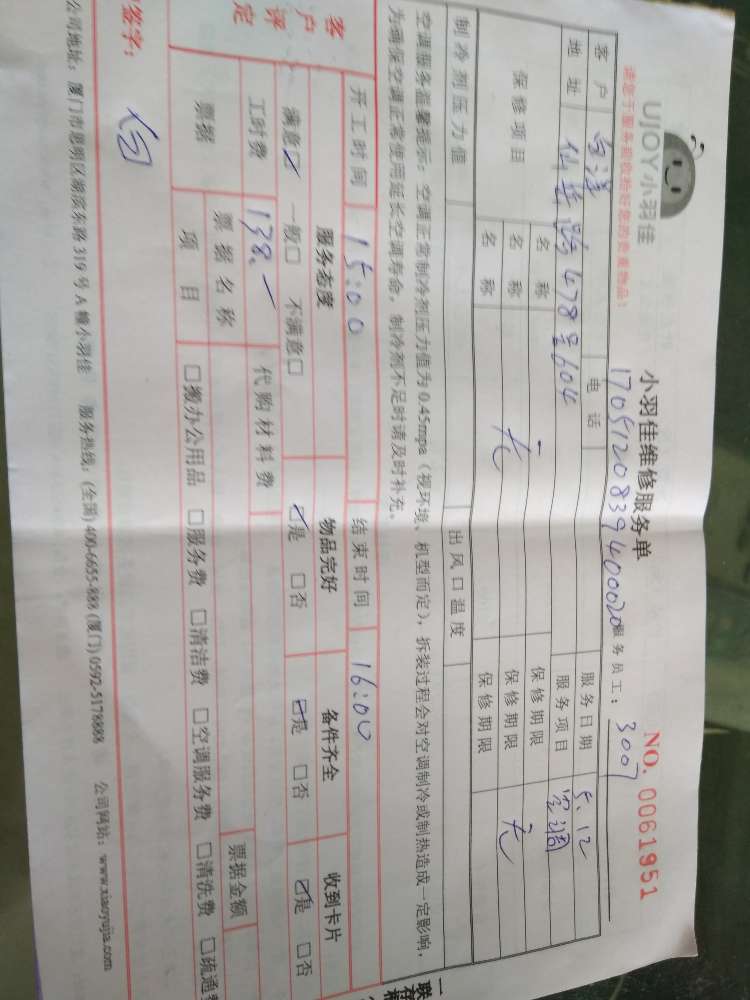 UJOY小羽佳
小羽佳维修服务单
NO. 0061951
请您于服务前收拾好您的贵重物品!
1705120839400020 服务员工: 3007
客户 电话 服务日期 5.12
地址 仙岳路478号604 服务项目 空调
保修项目 名称 保修期限
名称 无 保修期限 无
名称 保修期限
制冷剂压力值 出风口温度
空调服务温馨提示:空调正常制冷剂压力值为0.45mpa(视环境、机型而定),拆装过程会对空调制冷或制热造成一定影响,
为确保空调正常使用延长空调寿命,制冷剂不足时请及时补充。
开工时间 15:00 结束时间 16:00
客户评定 服务态度 物品完好 备件齐全 收到卡片
满意☑ 一般□ 不满意□ ☑是 □否 ☑是 □否 ☑是 □否
工时费 138.- 代购材料费
票据 票据名称 票据金额
项目 □搬办公用品 □服务费 □清洁费 □空调服务费 □清洗费 □疏通费
签字:
公司地址:厦门市思明区湖滨东路319号A幢小羽佳 服务热线:(全国)400-6655-888 (厦门)0592-5178888 公司网站:www.xiaoyujia.com
一联